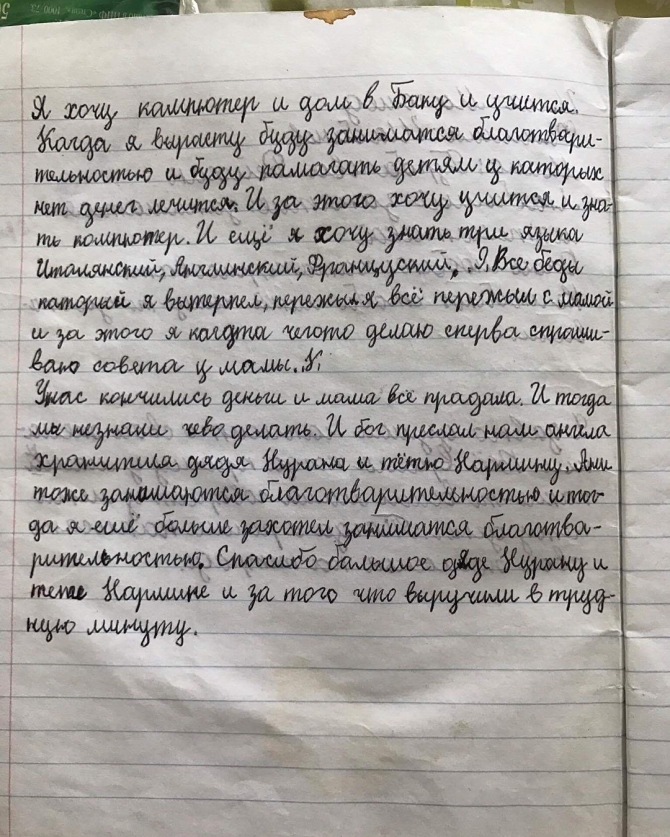 Я хочу кампютер и дом в Баку и учится.
Кагда я вырасту буду заниматся благотвари-
тельностью и буду памагать детям у каторых
нет денег лечится. И за этого хочу учится и зна-
ть компютер. И ещё я хочу знать три языка
Италянский, Англинский, Французский. Все беды
каторый я вытерпел, пережыл я всё пережыл с мамой
и за этого я кагдта чегото делаю сперва спраши-
ваю совета у мамы.
Унас кончились деньги и мама всё прадала. И тогда
мы незнали чево делать. И бог преслал нам ангела
хранитила дядя Нурана и тётю Нармину. Ани
тоже занимаются благотварительностью и тог-
да я ещё больше захотел заниматся благотва-
рительностью. Спасибо большое дяде Нурану и
тете Нармине и за того что выручили в труд-
ную минуту.